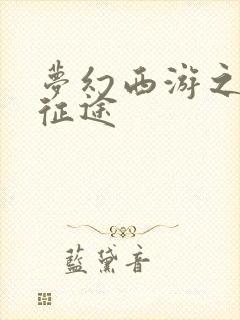 夢幻西游之
征途
藍黛音